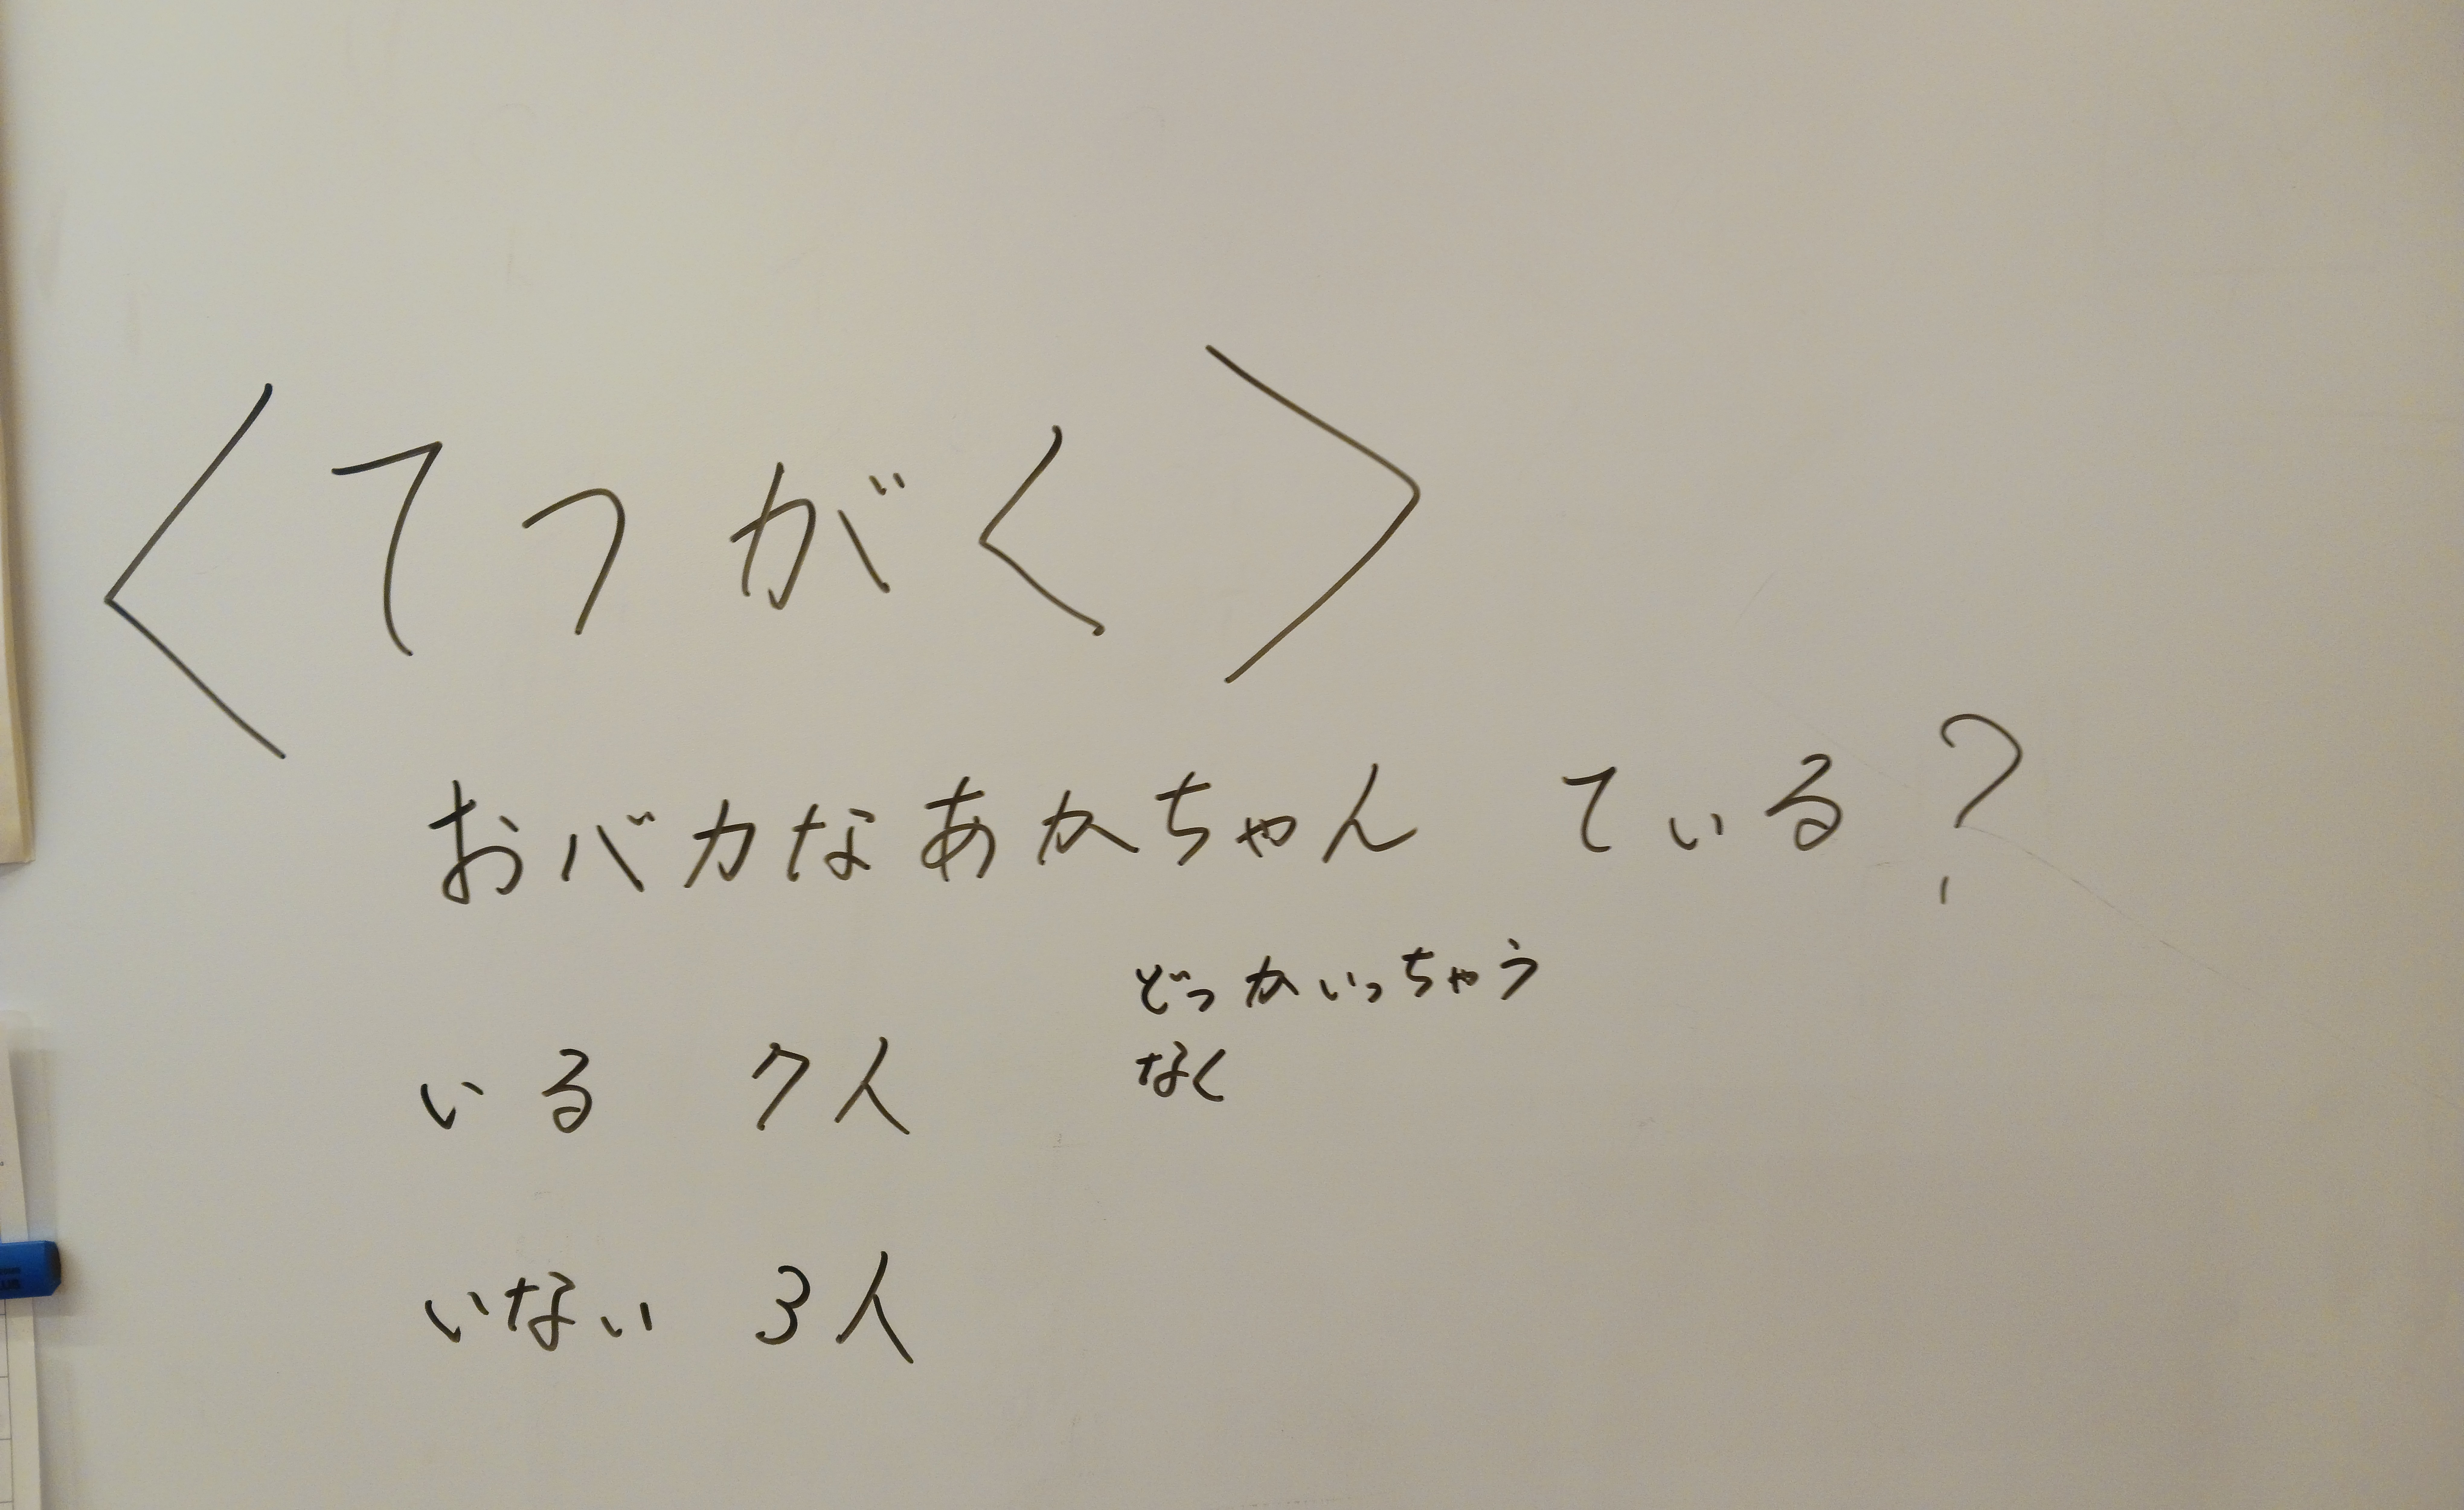 <てつがく>
おバカなあかちゃん ている?
どっかいっちゃう
いる 7人 なく
いない 3人